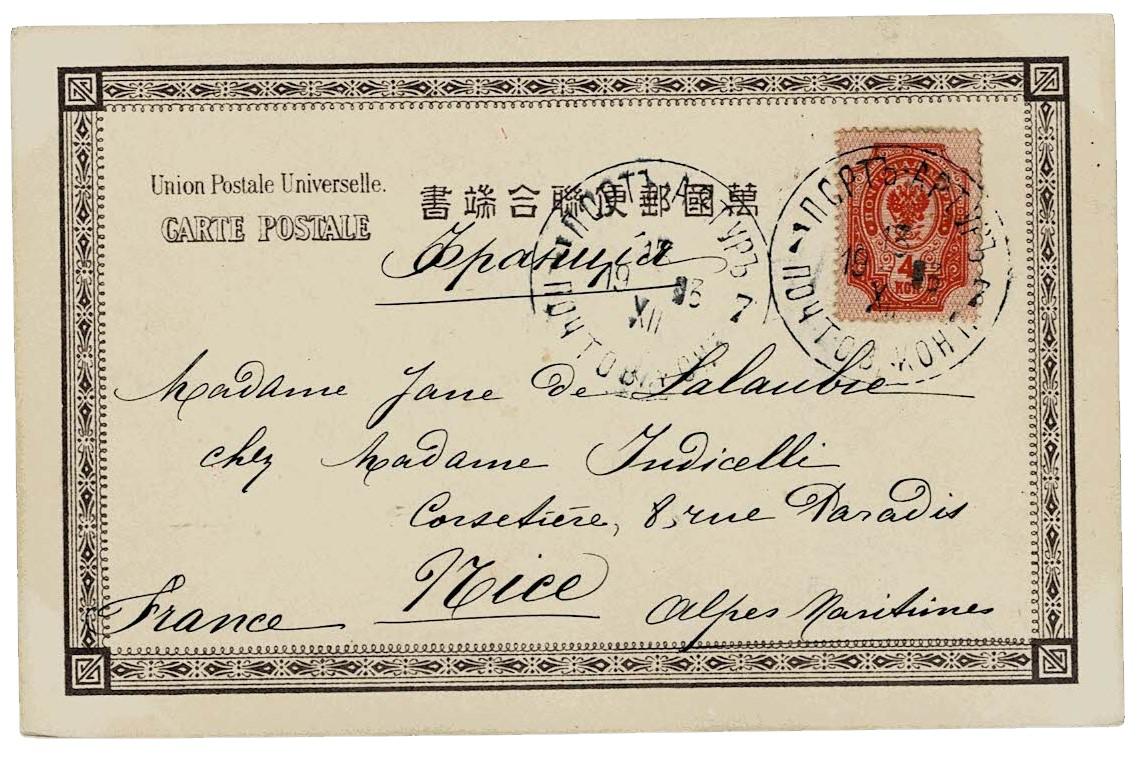 Union Postale Universelle.
CARTE POSTALE
書端合聯便郵國萬
Франція
Madame Jane de Lalaubie
chez Madame Indicelli
Corsetière, 8, rue Paradis
Nice
France
Alpes Maritimes
ПОРТЪ-АРТУРЪ
19 XII 03
ПОЧТОВ. КОН.
ПОРТЪ-АРТУРЪ
19 XII
ПОЧТОВ. КОН.
4
КОП